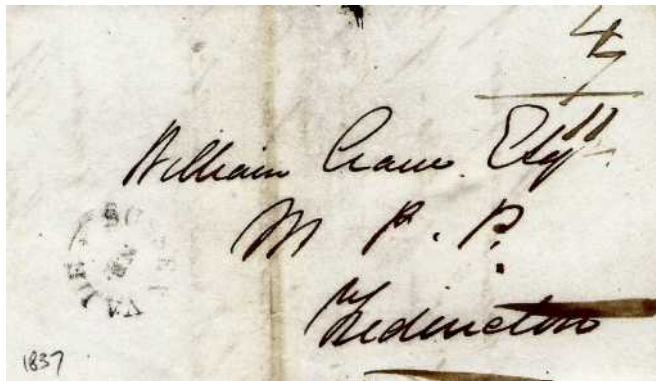 William Crane Esqr
M P. P.
Fredericton
1837